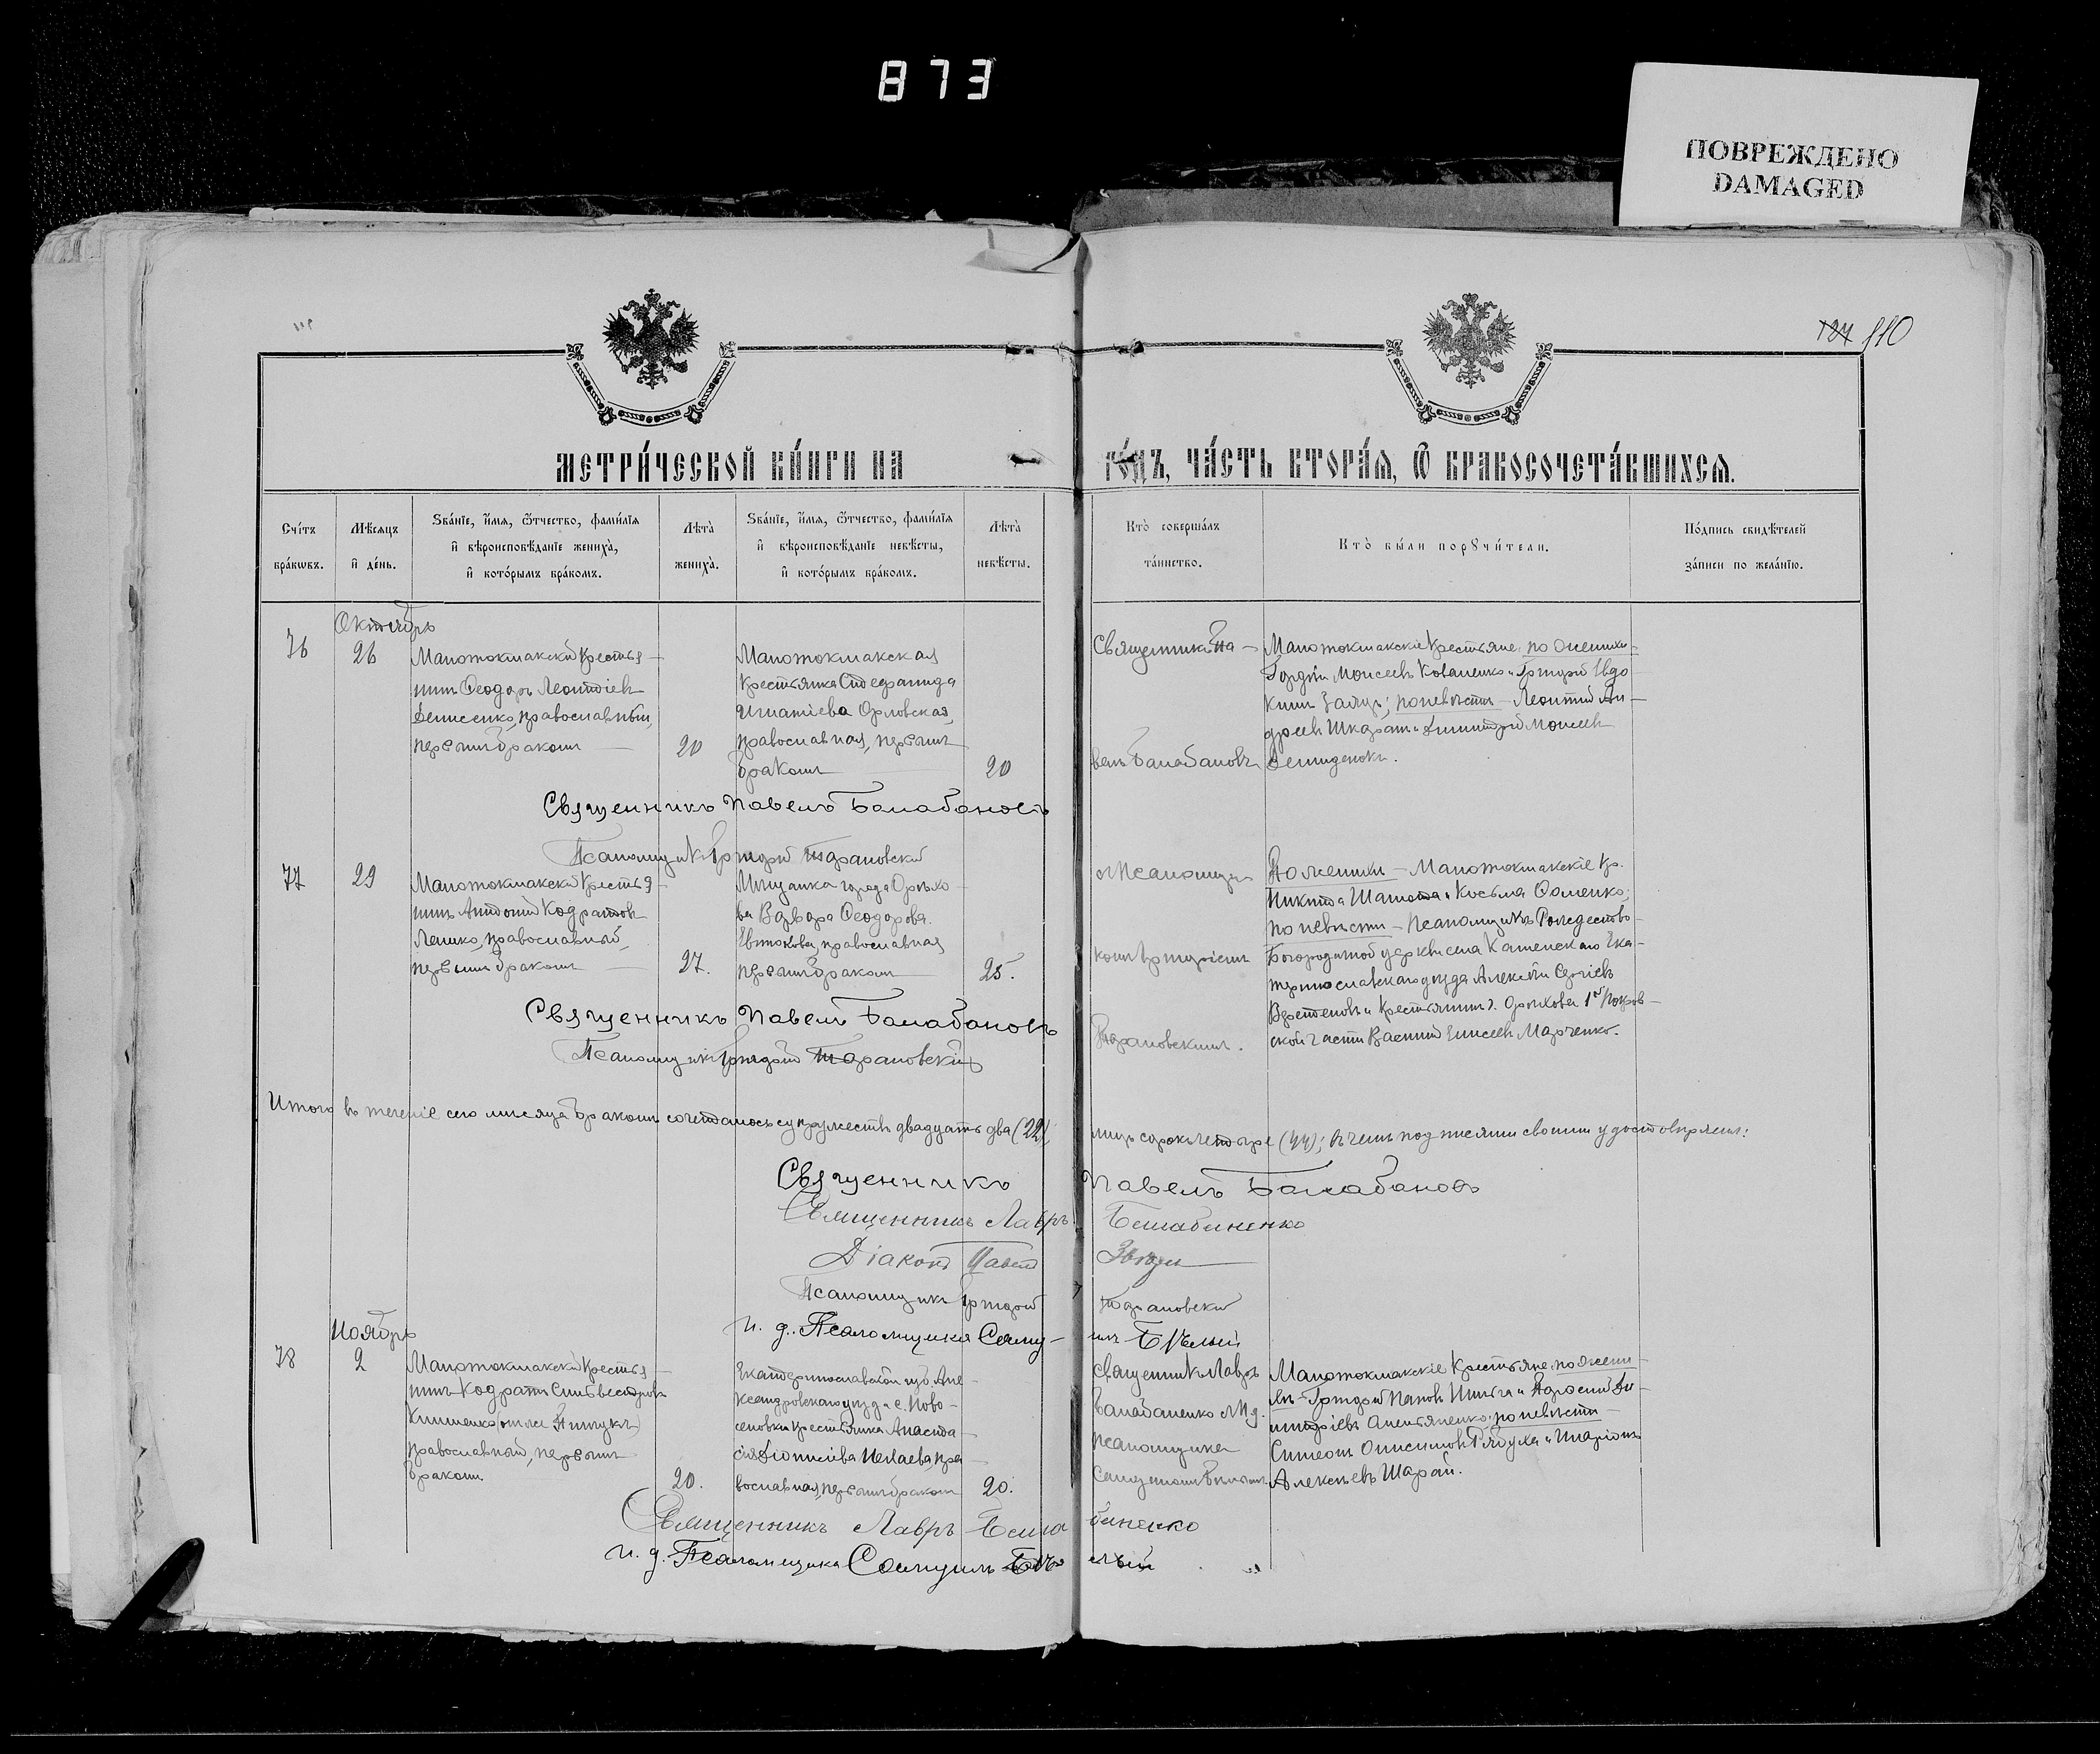 873
ПОВРЕЖДЕНО
DAMAGED
127 110
МЕТРИ́ЧЕСКОЙ КНИ́ГИ НА
ГО́ДЪ, ЧА́СТЬ ВТОРА́Ѧ, Ѿ БРАКОСОЧЕТА́ВШИХСѦ.
Сче́тъ
бра́кѡвъ.
Мѣ́сѧцъ
и҆ де́нь.
Ѕва́нїе, и҆́мѧ, ѻ҆́тчество, фами́лїѧ
и҆ вѣроисповѣ́данїе жениха̀,
и҆ кото́рымъ бра́комъ.
Лѣ́та̀
жениха̀.
Ѕва́нїе, и҆́мѧ, ѻ҆́тчество, фами́лїѧ
и҆ вѣроисповѣ́данїе невѣ́сты,
и҆ кото́рымъ бра́комъ.
Лѣ́та̀
невѣ́сты.
Кто̀ соверша́лъ
та́инство.
Кто̀ бы́ли порꙋчи́тели.
По́дпись свидѣ́телей
за́писи по жела́нїю.
Октябрь
76
26
Малотокмакскій крестья-
нинъ Ѳеодоръ Леонтіевъ
Денисенко, православный,
первымъ бракомъ
20
Малотокмакская
крестьянка
Игнатіева Орловская,
православная, первымъ
бракомъ
20
Священникъ Па-
велъ Балабановъ
Малотокмакскіе крестьяне: по женихѣ-
Гордій Моисеевъ Коваленко и Григорій Евдо-
кимъ ; по невѣстѣ - Леонтій Ан-
дреевъ и Димитрій Моисеевъ
Демиденокъ.
Священникъ Павелъ Балабановъ
Псаломщикъ Григорій Тарановскій
77
29
Малотокмакскій крестья-
нинъ Антоній Кодратовъ
Лешко, православный,
первымъ бракомъ
27.
Мѣщанка города Орѣхо-
ва Варвара Ѳеодорова
православная
первымъ бракомъ
25.
съ Псаломщи-
комъ Григоріемъ
Тарановскимъ.
По женихѣ - Малотокмакскіе кр.
Никита и Косьма Ѳоменко;
по невѣстѣ - Псаломщикъ Рождество-
Богородичной церкви села Каменскаго Ека-
теринославскаго уѣзда Алексѣй Сергіевъ
и крестьянинъ г. Орѣхова 1й Покров-
ской части Василій Елисеевъ Марченко.
Священникъ Павелъ Балабановъ
Псаломщикъ Григорій Тарановскій
Итого въ теченіе сего мѣсяца бракомъ сочеталось супружествъ двадцать два (22),
лицъ сорокъ четыре (44); въ чемъ подписями своими удостовѣряемъ:
Священникъ Павелъ Балабановъ
Священникъ Лавръ Балабаненко
Діаконъ Павелъ
Псаломщикъ Григорій Тарановскій
И. д. Псаломщика Саму-
илъ Бѣлый
Ноябрь
78
2
Малотокмакскій крестья-
нинъ Кодратъ Сильвестровъ
Клименко
православный, первымъ
бракомъ
20.
Екатеринославской губ. Але-
ксандровскаго уѣзда с. Ново-
крестьянка Анаста-
сія
вославная, первымъ бракомъ
20.
Священникъ Лавръ
Балабаненко и И. д.
псаломщика
Самуиломъ Бѣлымъ
Малотокмакскіе крестьяне: по жени-
хѣ - Григорій и Ди-
митріевъ ; по невѣстѣ -
Симеонъ Онисимовъ и Иларіонъ
Алексѣевъ Шарай.
Священникъ Лавръ Балабаненко
И. д. Псаломщика Самуилъ Бѣлый